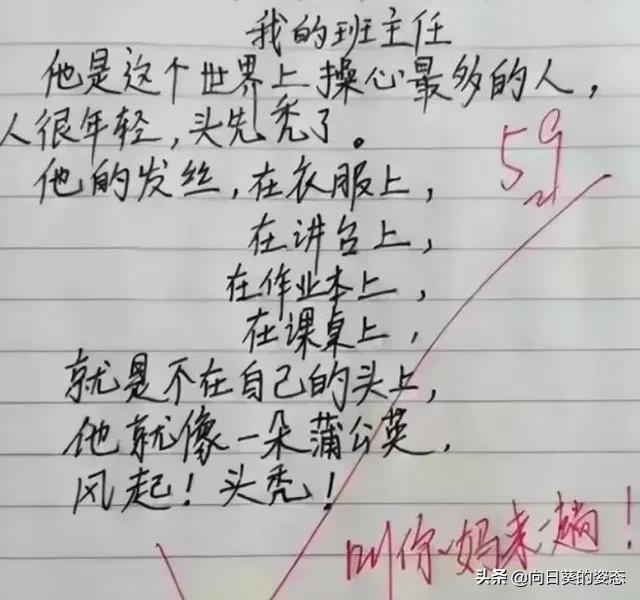 我的班主任
他是这个世界上操心最多的人，
人很年轻，头先秃了。
59
他的发丝，在衣服上，
在讲台上，
在作业本上，
在课桌上，
就是不在自己的头上，
他就像一朵蒲公英，
风起！头秃！
叫你妈来一趟！
头条 @向日葵的姿态